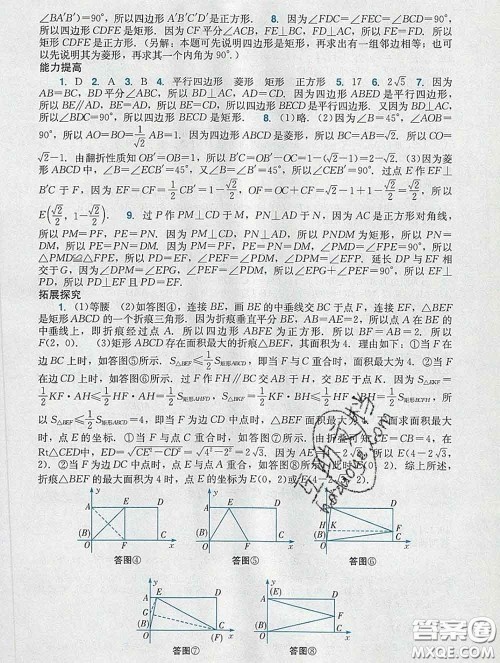 ∠BA′B′)=90°，所以四边形 A′B′C′D′是正方形. 8. 因为∠FDC=∠FEC=∠BCD=90°，所
以四边形 CDFE 是矩形. 因为 CF 平分∠ACB，FE⊥BC，FD⊥AC，所以 FE=FD. 所以
矩形 CDFE 是正方形.（另解：本题可先说明四边形是矩形，再求出有一组邻边相等；也可
以先说明其为菱形，再求其一个内角为 90°.）
能力提高
1. D 2. A 3. B 4. 平行四边形 菱形 矩形 正方形 5. 17 6. 2√5 7. 因为
AB=BC，BD 平分∠ABC，所以 BD⊥AC，AD=CD. 因为四边形 ABED 是平行四边形，
所以 BE∥AD，BE=AD，所以 BE=CD，所以四边形 BECD 是平行四边形. 又因为 BD⊥AC，
所以∠BDC=90°，所以四边形 BECD 是矩形. 8. (1)略. (2)因为∠B=45°，∠AOB=
90°，所以 AO=BO=1/√2 AB=1. 因为四边形 ABCD 是菱形，所以 BC=AB=√2. 所以 CO=
√2−1. 由翻折性质知 OB′=OB=1，所以 B′C=OB′−OC=1−(√2−1)=2−√2. (3)因为菱
形 ABCD 中，∠B=∠ECB′=45°，又∠B′=∠B=45°，所以∠CEB′=90°. 过点 E 作 EF⊥
B′C 于 F，因为 EF=CF=1/2 CB′=1−√2/2，OF=OC+CF=√2−1+1−√2/2=√2/2，所以
E(√2/2，1−√2/2). 9. 过 P 作 PM⊥CD 于 M，PN⊥AD 于 N，因为 AC 是正方形对角线，
所以 PM=PF，PE=PN. 因为四边形 ABCD 是正方形，所以 PNDM 为矩形，所以 PN=
DM. 所以 PE=PN=DM. 因为 PM=PF，PE=PN=DM，∠PMD=∠FPE=90°，所以
△PMD≌△FPE，所以 PD=EF，∠PDM=∠PEF，∠DPM=∠EFP. 延长 DP 与 EF 相
交于 G，因为∠DPM=∠EPG，∠PEF=∠PDM，所以∠EPG+∠PEF=90°，所以 EF⊥
PD，所以 PD⊥EF 且 PD=EF.
拓展探究
1. (1)等腰 (2)如答图④，连接 BE，画 BE 的中垂线交 BC 于点 F，连接 EF，△BEF
是矩形 ABCD 的一个折痕三角形. 因为折痕垂直平分 BE，AB=AE=2，所以点 A 在 BE 的
中垂线上，即折痕经过点 A. 所以四边形 ABFE 为正方形. 所以 BF=AB=2. 所以
F(2，0). (3)矩形 ABCD 存在面积最大的折痕△BEF，其面积为 4. 理由如下：①当 F 在
边 BC 上时，如答图⑤所示. S△BEF≤1/2 S矩形ABCD，即当 F 与 C 重合时，面积最大为 4. ②当 F
在边 CD 上时，如答图⑥所示，过 F 作 FH∥BC 交 AB 于 H，交 BE 于点 K. 因为 S△EKF=
1/2 KF·AH≤1/2 HF·AH=1/2 S矩形AHFD，S△BKF=1/2 KF·BH≤1/2 HF·BH=1/2 S矩形BCFH，所
以 S△BEF≤1/2 S矩形ABCD=4，即当 F 为 CD 中点时，△BEF 面积最大为 4. 下面求面积最大
时，点 E 的坐标. ①当 F 与点 C 重合时，如答图⑦所示. 由折叠可知 CE=CB=4，在
Rt△CDE 中，ED=√CE²−CD²=√4²−2²=2√3. 所以 AE=4−2√3. 所以 E(4−2√3，
2). ②当 F 为边 DC 中点时，点 E 与点 A 重合，如答图⑧所示. 此时 E(0，2). 综上所述，
折痕△BEF 的最大面积为 4 时，点 E 的坐标为 E(0，2)或 E(4−2√3，2).
y A E D (B) O F C x
答图④
y A E D (B) O F C x
答图⑤
y E D H K F (B) O C x
答图⑥
y A E D G (B) O C (F) x
答图⑦
y (E) A D F (B) O C x
答图⑧
答案圈
MXQE.COM